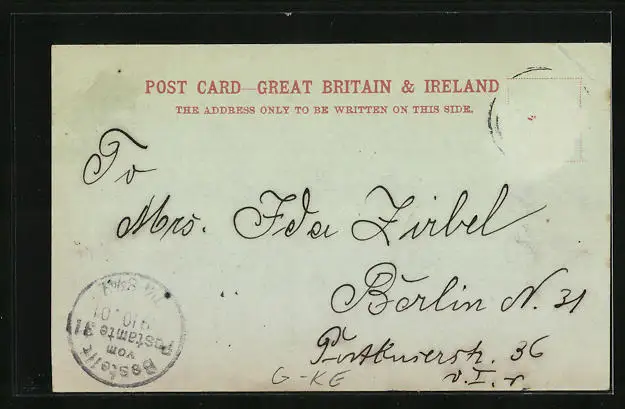 POST CARD—GREAT BRITAIN & IRELAND
THE ADDRESS ONLY TO BE WRITTEN ON THIS SIDE.
To
Mrs. Ida Zirbel
Berlin N. 31
36
v. I. r.
G-KE
Bestellt
vom
Postamte 31
10. 01